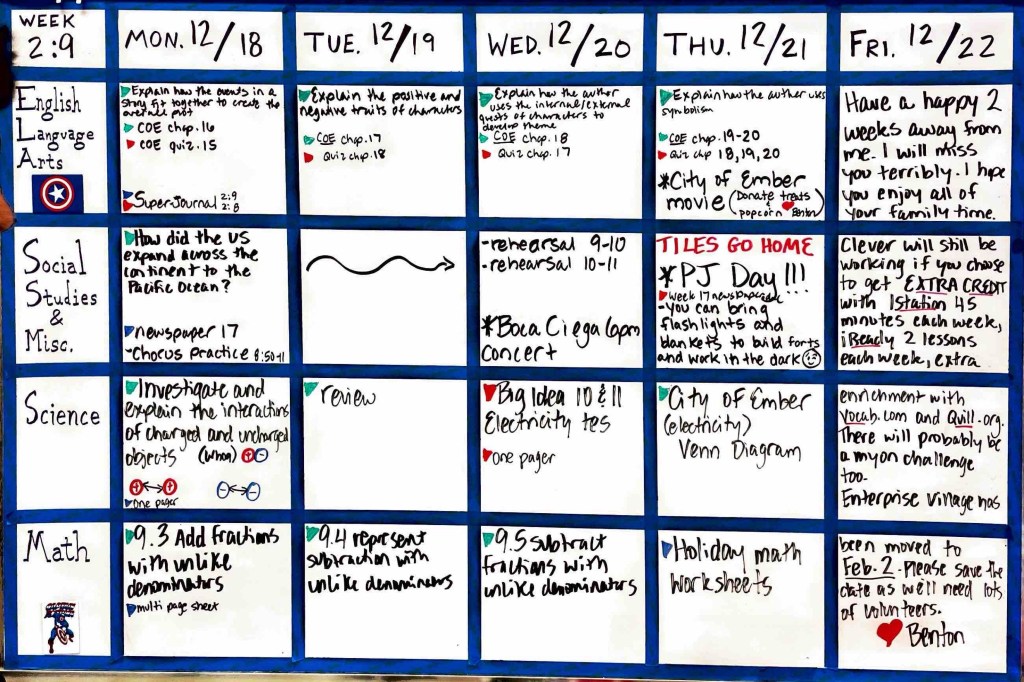 WEEK
2:9
MON. 12/18
TUE. 12/19
WED. 12/20
THU. 12/21
FRI. 12/22
English
Language
Arts
Explain how the events in a
story fit together to create the
overall plot
COE chap. 16
COE quiz. 15
Super Journal 2:9
2:8
Explain the positive and
negative traits of characters
COE chap. 17
Quiz chap. 18
Explain how the author
uses the internal/external
quests of characters to
develop theme
COE chap. 18
Quiz chap. 17
Explain how the author uses
symbolism
COE chap. 19-20
Quiz chap 18, 19, 20
*City of Ember
movie (Donate treats
& popcorn Benton)
Have a happy 2
weeks away from
me. I will miss
you terribly. I hope
you enjoy all of
your family time.
Social
Studies
&
Misc.
How did the US
expand across the
continent to the
Pacific Ocean?
newspaper 17
-Chorus Practice 8:50-11
-rehearsal 9-10
-rehearsal 10-11
*Boca Ciega 6pm
concert
TILES GO HOME
*PJ Day!!!
week 17 newspaper
-you can bring
flashlights and
blankets to build forts
and work in the dark
Clever will still be
working if you choose
to get EXTRA CREDIT
with Istation 45
minutes each week,
iReady 2 lessons
each week, extra
Science
Investigate and
explain the interactions
of charged and uncharged
objects (whoa) + -
+ ↔ + - ↔ -
one pager
review
Big Idea 10 & 11
Electricity tes
one pager
City of Ember
(electricity)
Venn Diagram
enrichment with
Vocab.com and Quill.org.
There will probably be
a myon challenge
too.
Enterprise Village has
Math
9.3 Add fractions
with unlike
denominators
multi page sheet
9.4 represent
subtraction with
unlike denominators
9.5 subtract
fractions with
unlike denominators
Holiday math
worksheets
been moved to
Feb. 2. Please save the
date as we'll need lots
of volunteers.
Benton